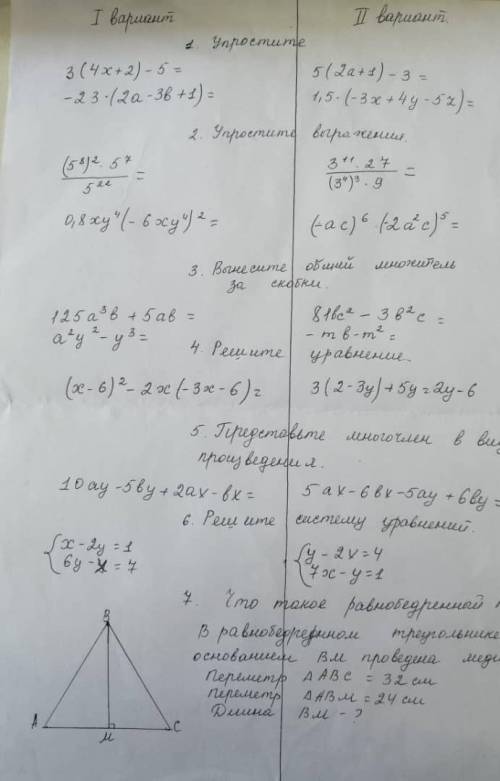 I вариант II вариант.
1. Упростите
3(4x+2)-5= 5(2a+1)-3=
-23·(2a-3b+1)= 1,5·(-3x+4y-5z)=
2. Упростите выражения.
(5⁸)²·5⁷/5²²= 3¹¹·27/(3⁴)³·9=
0,8xy⁴(-6xy⁴)²= (-ac)⁶·(-2a²c)⁵=
3. Вынесите общий множитель
за скобки.
125a³b+5ab= 81bc²-3b²c=
a²y²-y³= -mb-m²=
4. Решите уравнение.
(x-6)²-2x(-3x-6)= 3(2-3y)+5y=2y-6
5. Представьте многочлен в
произведения.
10ay-5by+2ax-bx= 5ax-6bx-5ay+6by=
6. Решите систему уравнений.
{x-2y=1 {y-2x=4
6y-x=7 7x-y=1
7. Что такое равнобедренной
В равнобедренном треугольнике
основанием BM проведена
Периметр ΔABC=32см
периметр ΔABM=24см
Длина BM-?
B
A
M
C